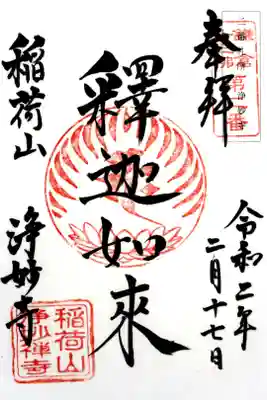 奉拝
令和二年
二月十七日
釋迦如來
稲荷山
浄妙寺
稲荷山
浄妙禅寺